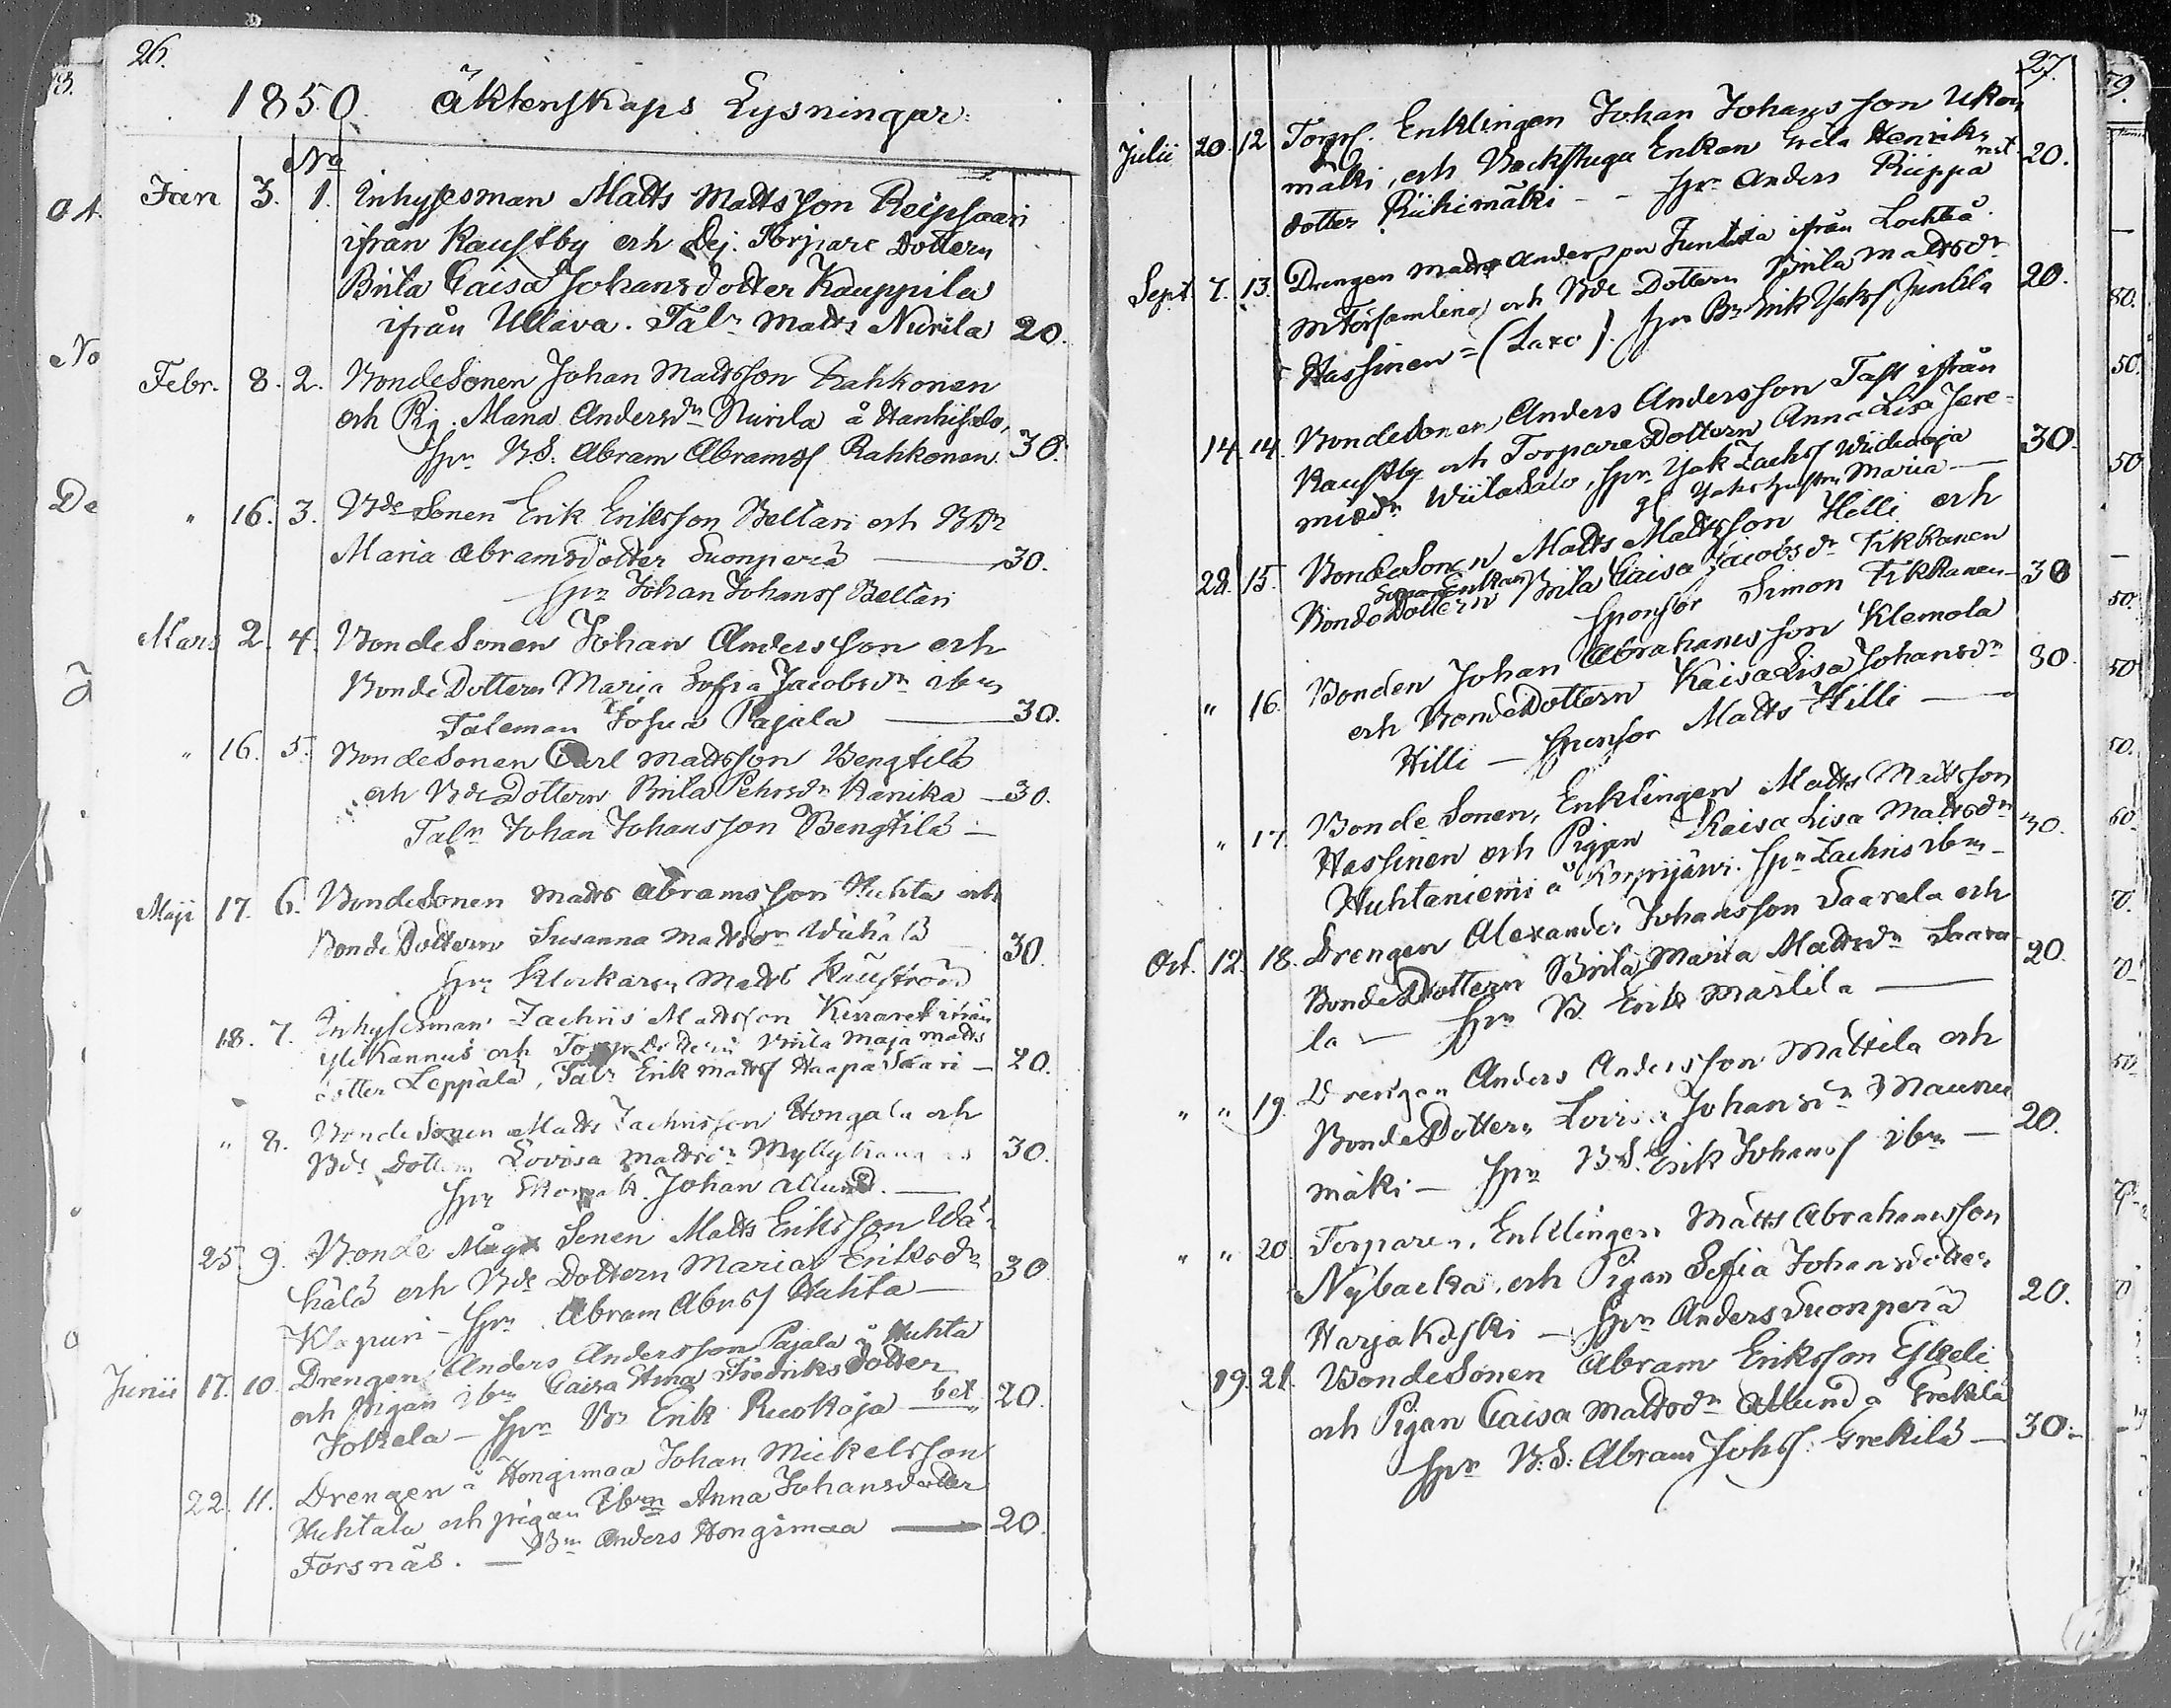 26.
1850. Äktenskaps Lysningar:
No
Jan 3. 1. Inhysesman Matts Mattsson Reipsaari
ifrån Kaustby och Dej. Torpare Dottern
Brita Caisa Johansdotter Kauppila
ifrån Ullava. Talm Matts Nurila 20.
Febr. 8. 2. Bondesonen Johan Mattsson Rahkonen
och Pig. Maria Andersdr Nurila å Hanhisalo,
Spr B.S. Abram Abramss Rahkonen. 30.
" 16. 3. Bde Sonen Erik Eriksson Bellari och BDr
Maria Abramsdotter Suonperä 30.
Spr Johan Johanss Bellari
Mars 2. 4. BondeSonen Johan Andersson och
BondeDottern Maria Sofia Jacobsdr ibm
Taleman Josua Pajala 30.
" 16. 5. BondeSonen Carl Mattsson Bengtilä
och BdeDottern Brita Pehrsdr Känikä 30.
Talm Johan Johansson Bengtilä
Maji 17. 6. BondeSonen Matts Abramsson Huhta och
BondeDottern Susanna Mattsdr Wähälä 30.
Spr Klockaren Matts Kauström
18. 7. Inhysesman Zachris Mattsson ifrån
Ylikannus och Torp Dottern Brita Maja Matts
dotter Leppälä, Talm Erik Mattss Haapasaari 20.
" 8. BondeSonen Matts Zachrisson Hongala och
Bde Dottern Lovisa Mattsdr
Spr Johan Ahlund. 30.
25. 9. Bonde Måg Sonen Matts Eriksson Wä-
hälä och Bde Dottern Maria Eriksdr
Klapuri - Spr Abram Abrss Huhta 30
Junii 17. 10. Drengen Anders Andersson Pajala å Huhta
och Pigan ibm Caisa Stina Fredriksdotter
Jokela - Spr Br Erik Ruokoja bet 20.
22. 11. Drengen å Hongimaa Johan Mickelsson
Huhtala och pigan Ibm Anna Johansdotter
Forsnäs. - Br Anders Hongimaa 20.
27.
Julii 20. 12 Torps. Enklingen Johan Johansson Ukon
mäki, och Backstugu Enkan Greta Henriks
dotter Riihimäki - - Spr Anders Riippa 20.
Sept. 7. 13. Drengen Matts Andersson Juntila ifrån Lochteå
mFörsamling och Bde Dottern Brita Mattsdr
Hassinen = (Laxo). Spr Br Erik Jakss Juntila 20.
14. 14. BondeSonen Anders Andersson Tast ifrån
Kaustby och TorpareDottern Anna Lisa Jere-
miædr Wiilasalo, Spr Jak Zachss Wiidenoja 30.
gl Maria
22. 15. BondeSonen Matts Mattsson Hilli och
BondeDottern Brita Caisa Jacobsdr Tikkanen
Sponsor Simon Tikkanen 30
" 16. Bonden Johan Abrahamsson Klemola
och BondeDottern Kaisa Lisa Johansdr
Hilli - Sponsor Matts Hilli 30.
" 17. Bonde Sonen, Enklingen Matts Mattsson
Hassinen och Pigan Kaisa Lisa Mattsdr
Huhtaniemi å Köyrijärvi. Spr Zachris ibm 30.
Oct. 12. 18. Drengen Alexander Johansson Saarela och
BondeDottern Brita Maria Mattsdr Saare
la - Spr B. Erik Märlila 20.
" " 19. Drengen Anders Andersson Mattila och
BondeDottern Lovisa Johansdr Maunu
mäki - Spr B.S. Erik Johanss ibm 20.
" " 20. Torparen, Enklingen Matts Abrahamsson
Nybacka, och Pigan Sofia Johansdotter
Harjakoski - Spr Anders Suonperä 20.
19. 21. BondeSonen Abram Eriksson Eskeli
och Pigan Caisa Mattsdr Ahlund å Grekilä
Spr B.S. Abram Johss. Grekilä 30.